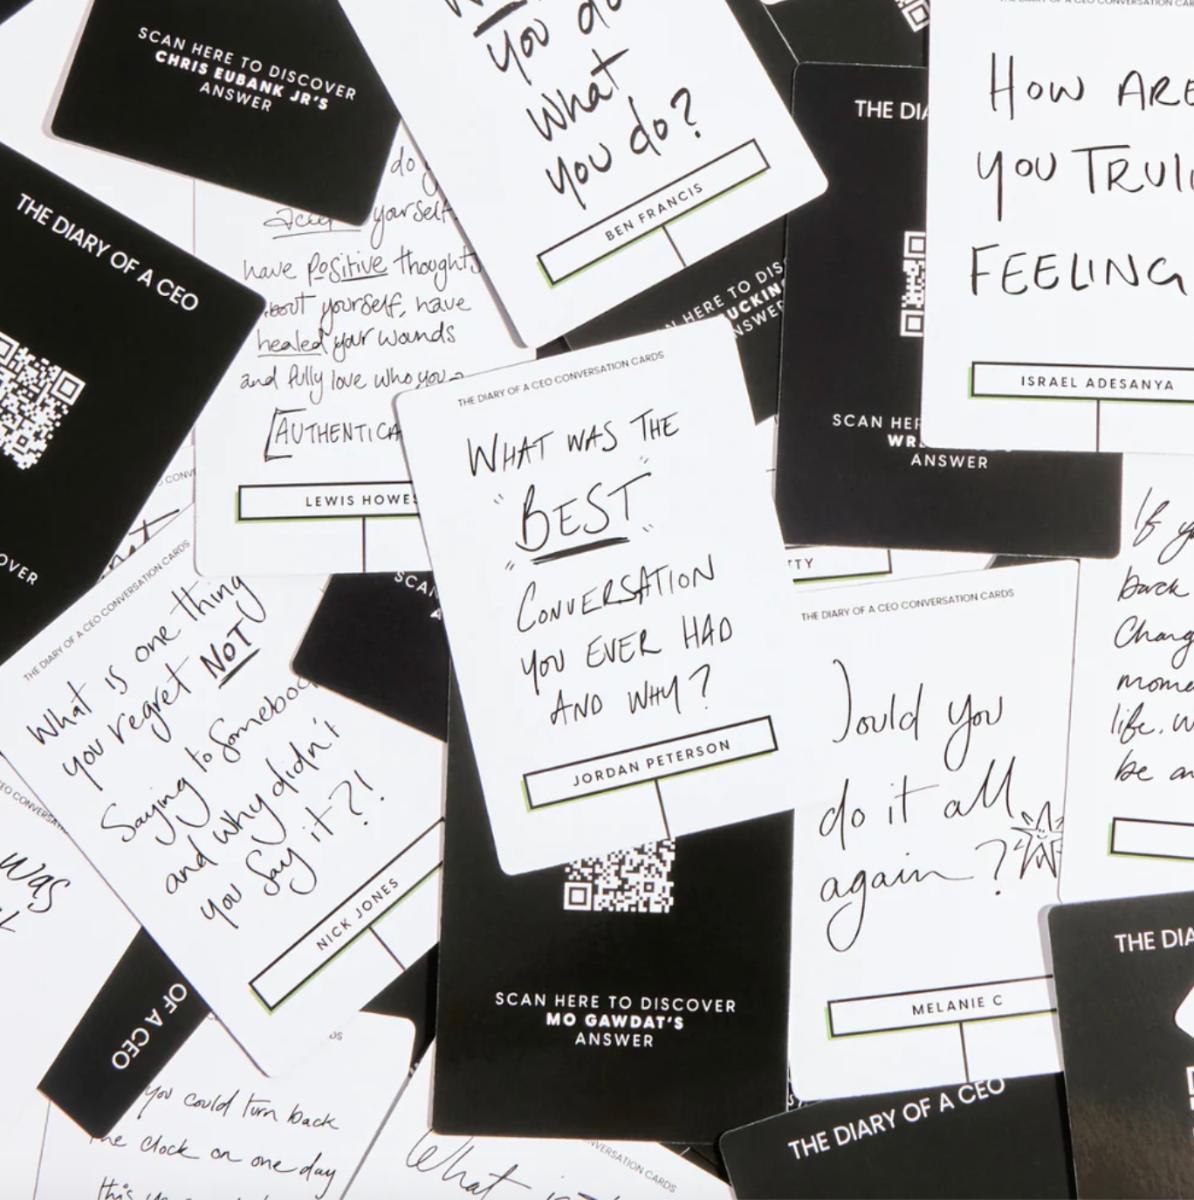 SCAN HERE TO DISCOVER
CHRIS EUBANK JR'S
ANSWER
you do
what
you do?
BEN FRANCIS
THE DIARY OF A CEO CONVERSATION
HOW ARE
YOU
FEELING
ISRAEL ADESANYA
THE
SCAN
ANSWER
HERE TO
THE DIARY OF A CEO
do
yourself
have positive thoughts
yourself, have
healed your wounds
and fully love who you
LEWIS HOWES
THE DIARY OF A CEO CONVERSATION CARDS
WHAT WAS THE
"BEST"
CONVERSATION
YOU EVER HAD
AND WHY?
JORDAN PETERSON
SCAN HERE TO DISCOVER
MO GAWDAT'S
ANSWER
THE DIARY OF A CEO CONVERSATION CARDS
What is one thing
you regret NOT
Saying to Somebody
and why didn't
you say it?!
NICK JONES
THE DIARY OF A CEO CONVERSATION CARDS
would you
do it all
again?
MELANIE C
If
back
life.
be
was
OF A CEO
you could turn back
the clock on one day
this
CONVERSATION CARDS
What
THE DIARY OF A CEO
THE